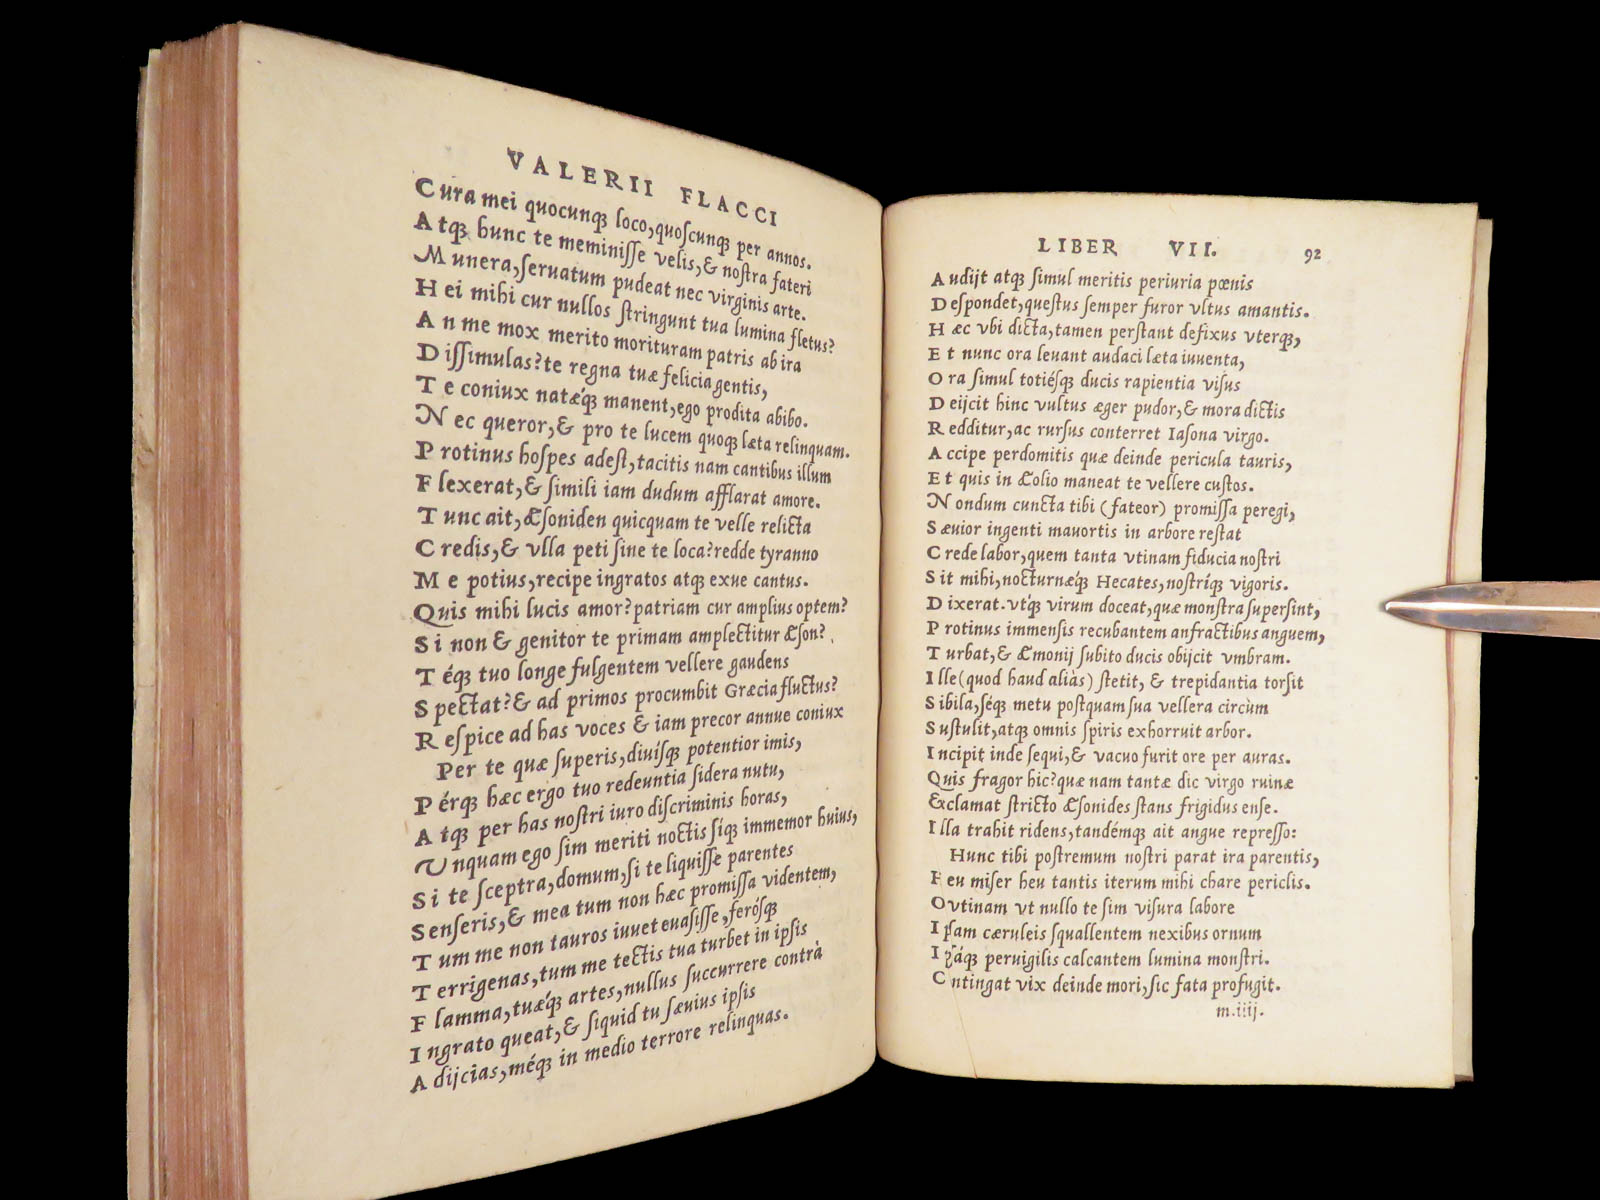 VALERII FLACCI
Cura mei quocunqȝ loco,quoſcunqȝ per annos.
Atqȝ hunc te meminiſſe velis,& noſtra fateri
Munera,ſeruatum pudeat nec virginis arte.
Hei mihi cur nullos ſtringunt tua lumina fletus?
An me mox merito morituram patris ab ira
Diſſimulas?te regna tuæ felicia gentis,
Te coniux natǽqȝ manent,ego prodita abibo.
Nec queror,& pro te lucem quoqȝ læta relinquam.
Protinus hoſpes adeſt,tacitis nam cantibus illum
Flexerat,& ſimili iam dudum afflarat amore.
Tunc ait,Æſoniden quicquam te velle relicta
Credis,& vlla peti ſine te loca?redde tyranno
Me potius,recipe ingratos atqȝ exue cantus.
Quis mihi lucis amor?patriam cur amplius optem?
Si non & genitor te primam amplectitur Æſon?
Téqȝ tuo longe fulgentem vellere gaudens
Spectat?& ad primos procumbit Græcia fluctus?
Reſpice ad has voces & iam precor annue coniux
Per te quæ ſuperis,diuíſqȝ potentior imis,
Pérqȝ hæc ergo tuo redeuntia ſidera nutu,
Atqȝ per has noſtri iuro diſcriminis horas,
Unquam ego ſim meriti noctis ſíqȝ immemor huius,
Si te ſceptra,domum,ſi te liquiſſe parentes
Senſeris,& mea tum non hæc promiſſa videntem,
Tum me non tauros iuuet euaſiſſe,feróſqȝ
Terrigenas,tum me tectis tua turbet in ipſis
Flamma,tuǽqȝ artes,nullus ſuccurrere contrà
Ingrato queat,& ſiquid tu ſæuius ipſis
Adijcias,méqȝ in medio terrore relinquas.
LIBER VII. 92
Audijt atqȝ ſimul meritis periuria pœnis
Deſpondet,queſtus ſemper furor vltus amantis.
Hæc vbi dicta,tamen perſtant defixus vterqȝ,
Et nunc ora leuant audaci læta iuuenta,
Ora ſimul totiéſqȝ ducis rapientia viſus
Deijcit hinc vultus æger pudor,& mora dictis
Redditur,ac rurſus conterret Iaſona virgo.
Accipe perdomitis quæ deinde pericula tauris,
Et quis in Æolio maneat te vellere cuſtos.
Nondum cuncta tibi (fateor) promiſſa peregi,
Sæuior ingenti mauortis in arbore reſtat
Crede labor,quem tanta vtinam fiducia noſtri
Sit mihi,nocturnǽqȝ Hecates,noſtríqȝ vigoris.
Dixerat.vtqȝ virum doceat,quæ monſtra ſuperſint,
Protinus immenſis recubantem anfractibus anguem,
Turbat,& Æmonij ſubito ducis obijcit vmbram.
Ille(quod haud aliàs) ſtetit, & trepidantia torſit
Sibila,ſéqȝ metu poſtquam ſua vellera circùm
Suſtulit,atqȝ omnis ſpiris exhorruit arbor.
Incipit inde ſequi,& vacuo furit ore per auras.
Quis fragor hic?quæ nam tantæ dic virgo ruinæ
Exclamat ſtricto Æſonides ſtans frigidus enſe.
Illa trahit ridens,tandémqȝ ait angue repreſſo:
Hunc tibi poſtremum noſtri parat ira parentis,
Heu miſer heu tantis iterum mihi chare periclis.
Outinam vt nullo te ſim viſura labore
Ipſam cæruleis ſquallentem nexibus ornum
Ipsáqȝ peruigilis calcantem lumina monſtri.
Cntingat vix deinde mori,ſic fata profugit.
m.iiij.